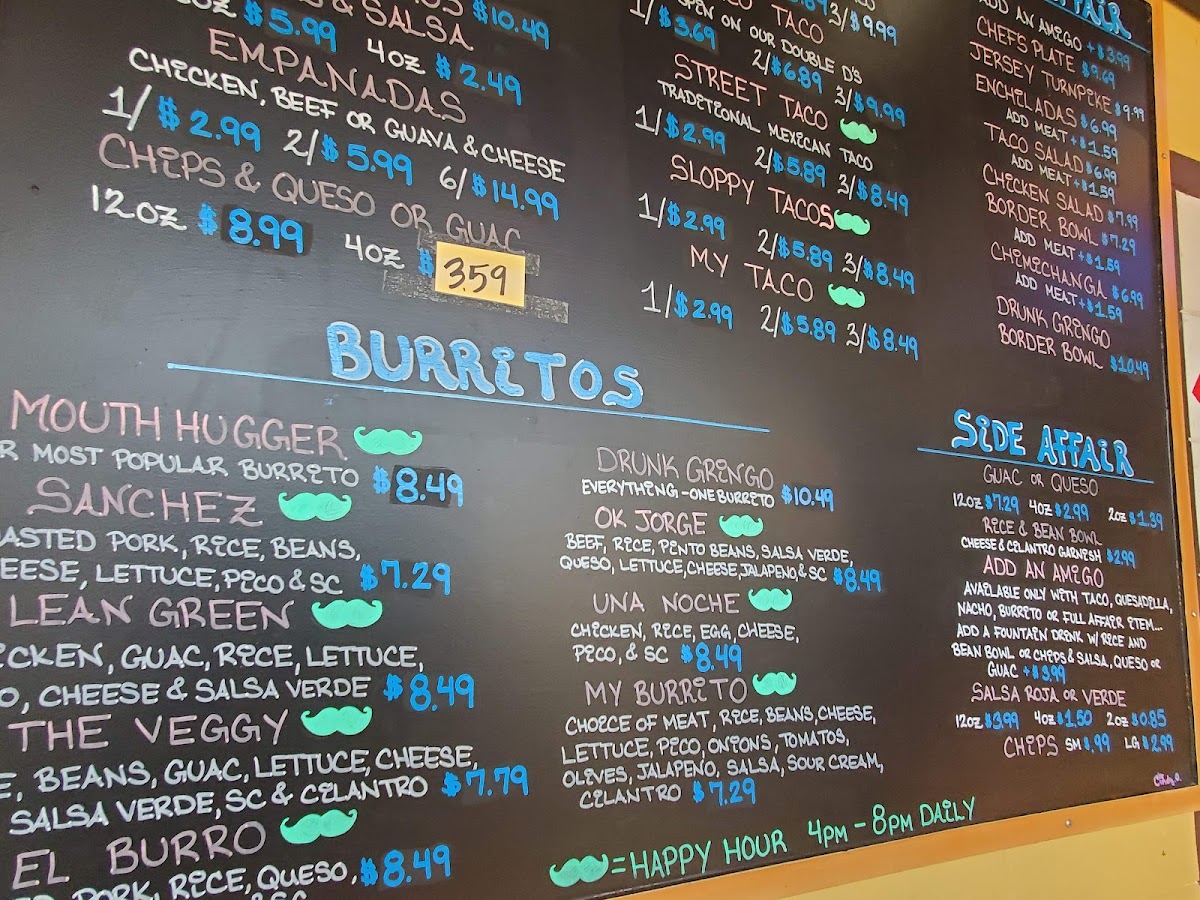 $10.49
& SALSA
$5.99 4OZ $2.49
EMPANADAS
CHICKEN, BEEF OR GUAVA & CHEESE
1/$2.99 2/$5.99 6/$14.99
CHIPS & QUESO OR GUAC
12OZ $8.99 4OZ $3.59
TACO 3/$9.99
OPEN ON OUR DOUBLE D'S
1/$3.69 2/$6.89 3/$9.99
STREET TACO
TRADITIONAL MEXICAN TACO
1/$2.99 2/$5.89 3/$8.49
SLOPPY TACOS
1/$2.99 2/$5.89 3/$8.49
MY TACO
1/$2.99 2/$5.89 3/$8.49
AFFAIR
ADD AN AMIGO +$3.99
CHEFS PLATE $9.69
JERSEY TURNPIKE $9.99
ENCHILADAS $6.99
ADD MEAT +$1.59
TACO SALAD $6.99
ADD MEAT +$1.59
CHICKEN SALAD $7.99
BORDER BOWL $7.29
ADD MEAT +$1.59
CHIMICHANGA $6.99
ADD MEAT +$1.59
DRUNK GRINGO
BORDER BOWL $10.49
BURRITOS
MOUTH HUGGER
R MOST POPULAR BURRITO $8.49
SANCHEZ
ASTED PORK, RICE, BEANS,
EESE, LETTUCE, PICO & SC $7.29
LEAN GREEN
ICKEN, GUAC, RICE, LETTUCE,
O, CHEESE & SALSA VERDE $8.49
THE VEGGY
E, BEANS, GUAC, LETTUCE, CHEESE,
SALSA VERDE, SC & CILANTRO $7.79
EL BURRO
ED PORK, RICE, QUESO, $8.49
DRUNK GRINGO
EVERYTHING-ONE BURRITO $10.49
OK JORGE
BEEF, RICE, PINTO BEANS, SALSA VERDE,
QUESO, LETTUCE, CHEESE, JALAPENO, & SC $8.49
UNA NOCHE
CHICKEN, RICE, EGG, CHEESE,
PICO, & SC $8.49
MY BURRITO
CHOICE OF MEAT, RICE, BEANS, CHEESE,
LETTUCE, PICO, ONIONS, TOMATOS,
OLIVES, JALAPENO, SALSA, SOUR CREAM,
CILANTRO $7.29
=HAPPY HOUR 4PM - 8PM DAILY
SIDE AFFAIR
GUAC OR QUESO
12OZ $7.29 4OZ $2.99 2OZ $1.39
RICE & BEAN BOWL
CHEESE & CILANTRO GARNISH $2.99
ADD AN AMIGO
AVAILABLE ONLY WITH TACO, QUESADILLA,
NACHO, BURRITO OR FULL AFFAIR ITEM...
ADD A FOUNTAIN DRINK W/ RICE AND
BEAN BOWL OR CHIPS & SALSA, QUESO OR
GUAC +$3.99
SALSA ROJA OR VERDE
12OZ $3.99 4OZ $1.50 2OZ $0.85
CHIPS SM $.99 LG $2.99